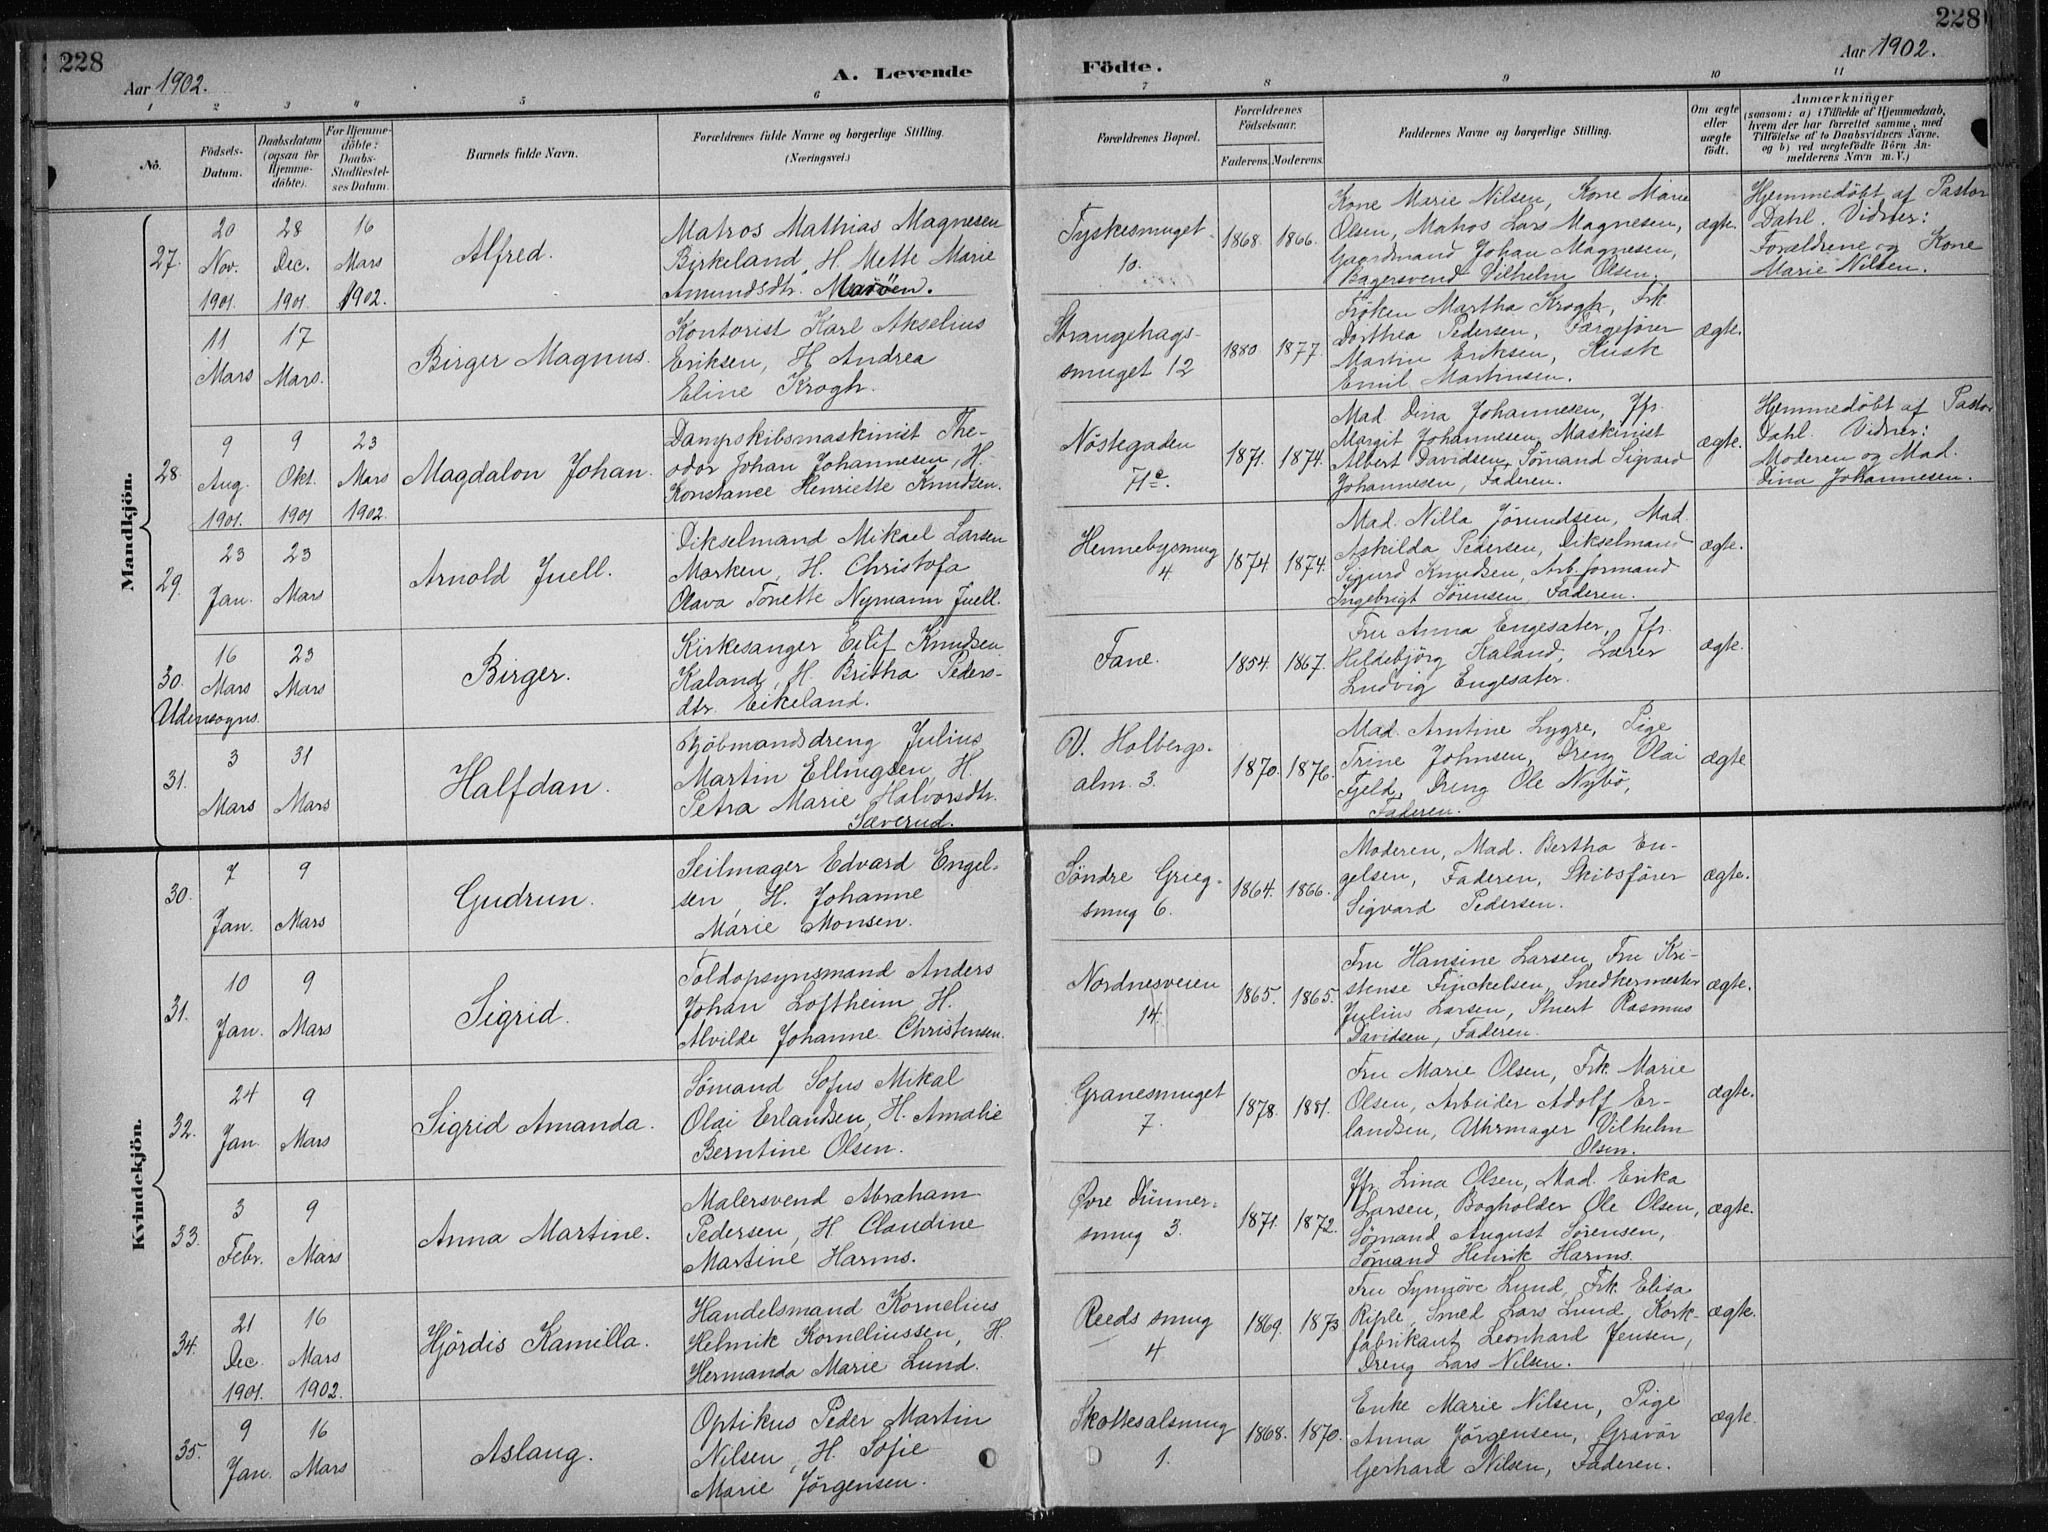 228
Aar 1902.
A. Levende
Födte.
Aar 1902.
228
1 2 3 4 5 6 7 8 9 10 11
No.
Födsels-
Datum.
Daabsdatum
(ogsaa for
Hjemme-
döbte).
For Hjemme-
döbte:
Daabs-
Stadfæstel-
ses Datum.
Barnets fulde Navn.
Forældrenes fulde Navne og borgerlige Stilling.
(Næringsvei.)
Forældrenes Bopæl.
Forældrenes
Födselsaar.
Faderens. Moderens.
Faddernes Navne og borgerlige Stilling.
Om ægte
eller
uægte
født.
Anmærkninger
(saasom: a) i Tilfælde af Hjemmedaab,
hvem der har forrettet samme, med
Tilföielse af to Daabsvidners Navne.
og b) ved uægtefödte Börn An-
melderens Navn m. V.)
Mandkjön.
27.
20
Nov.
1901.
28
Dec.
1901.
16
Mars
1902.
Alfred.
Matros Mathias Magnesen
Birkeland, H. Mette Marie
Amundsdtr.
Tyskesmuget
10.
1868. 1866.
Kone Marie Nilsen, Kone Marie
Olsen, Matros Lars Magnesen,
Gaardmand Johan Magnesen,
Bagersvend Vilhelm Olsen.
ægte.
Hjemmedøbt af Pastor
Dahl. Vidner:
Forældrene og Kone
Marie Nilsen.
11
Mars
17
Mars.
Birger Magnus.
Kontorist Karl Akselius
Eriksen, H. Andrea
Eline Krogh.
Strangehags-
smuget 12
1880. 1877.
Frøken Martha Krogh, Frk
Dorthea Pedersen, Færgefører
Martin Eriksen, Kusk
Emil Martinsen.
ægte.
28.
9
Aug.
1901.
9
Okt.
1901
23
Mars
1902.
Magdalon Johan.
Dampskibsmaskinist The-
odor Johan Johannesen, H.
Konstance Henriette Knudsen.
Nøstegaden
71c.
1871. 1874.
Mad Dina Johannesen, Jfr.
Margit Johannesen, Maskinist
Albert Davidsen, Sømand Sigvard
Johannesen, Faderen.
ægte.
Hjemmedøbt af Pastor
Dahl. Vidner:
Moderen og Mad.
Dina Johannesen.
29.
23
Jan.
23
Mars
Arnold Juell.
Dikselmand Mikael Larsen
Marken, H. Christofa
Olava Tonette Nymann Juell.
Hennebysmug
4
1874. 1874.
Mad. Nilla Jørundsen, Mad.
Askilda Pedersen, Dikselmand
Sigurd Knudsen, Arb. formand
Ingebrigt Sørensen, Faderen.
ægte.
30.
Udensogns.
16
Mars
23
Mars
Birger.
Kirkesanger Eilif Knudsen
Kaland, H. Britha Peders-
dtr. Eikeland.
Fane.
1854. 1867.
Fru Anna Engesæter, Jfr.
Hildebjörg Kaland, Lærer
Ludvig Engesæter.
ægte.
31.
3
Mars
31
Mars
Halfdan.
Kjöbmandsdreng Julius
Martin Ellingsen, H.
Petra Marie Halvorsdtr.
Sæverud.
V. Holbergs-
alm. 3.
1870. 1876.
Mad. Arntine Lygre, Pige
Trine Johnsen, Dreng Olai
Fjeld, Dreng Ole Nybö,
Faderen.
ægte
Kvindekjön.
30.
7
Jan.
9
Mars
Gudrun.
Seilmager Edvard Engel-
sen, H. Johanne
Marie Monsen.
Söndre Grieg-
smug 6.
1864. 1866.
Moderen, Mad. Bertha En-
gelsen, Faderen, Skibsfører
Sigvard Pedersen.
ægte.
31.
10
Jan.
9
Mars
Sigrid.
Toldopsynsmand Anders
Johan Loftheim, H.
Alvilde Johanne Christensen.
Nordnesveien
14.
1865. 1865.
Fru Hansine Larsen, Fru Kri-
stense Finckelsen, Snedkermester
Julius Larsen, Stuert Rasmus
Davidsen, Faderen.
ægte.
32.
24
Jan.
9
Mars
Sigrid Amanda.
Sømand Sofus Mikal
Olai Erlandsen, H. Amalie
Berntine Olsen.
Granesmuget
7.
1878. 1881.
Fru Marie Olsen, Frk. Marie
Olsen, Arbeider Adolf Er-
landsen, Uhrmager Vilhelm
Olsen.
ægte.
33.
3
Febr.
9
Mars
Anna Martine.
Malersvend Abraham
Pedersen, H. Claudine
Martine Harms.
Øvre Dünner-
smug 3.
1871. 1872.
Jfr. Lina Olsen, Mad. Erika
Larsen, Bogholder Ole Olsen,
Sømand August Sørensen,
Sømand Henrik Harms.
ægte.
34.
21
Dec.
1901.
16
Mars
1902.
Hjördis Kamilla.
Handelsmand Kornelius
Helmik Korneliussen, H.
Hermanda Marie Lund.
Reeds smug
4
1869. 1873.
Fru Synnöve Lund, Frk. Elisa
Riple, Smed Lars Lund, Kork-
fabrikant Leonhard Jensen,
Dreng Lars Nilsen.
ægte.
35.
9
Jan.
16
Mars
Aslaug.
Optikus Peder Martin
Nilsen, H. Sofie
Marie Jörgensen.
Skottesalsmug
1.
1868. 1870.
Enke Marie Nilsen, Pige
Anna Jørgensen, Gravör
Gerhard Nilsen, Faderen.
ægte.